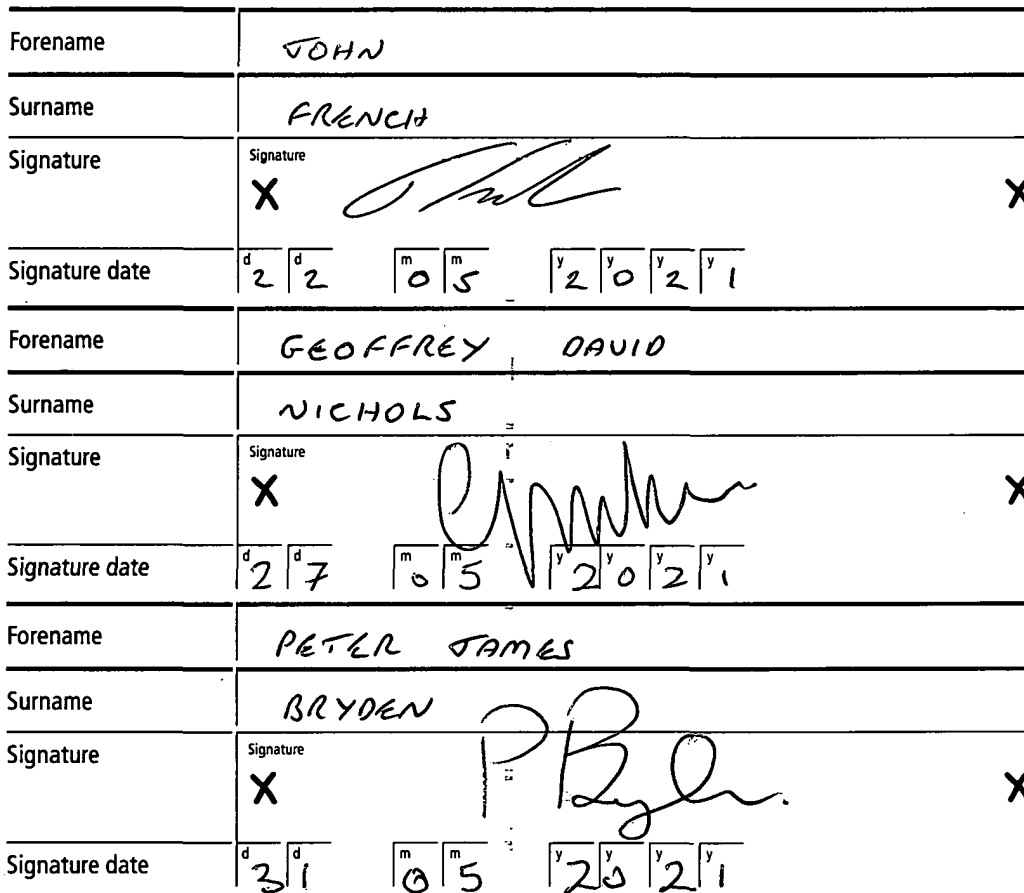 Forename JOHN
Surname FRENCH
Signature Signature
X X
Signature date d2 d2 m0 m5 y2 y0 y2 y1
Forename GEOFFREY DAVID
Surname NICHOLS
Signature Signature
X X
Signature date d2 d7 m0 m5 y2 y0 y2 y1
Forename PETER JAMES
Surname BRYDEN
Signature Signature
X P Bryden. X
Signature date d3 d1 m0 m5 y2 y0 y2 y1